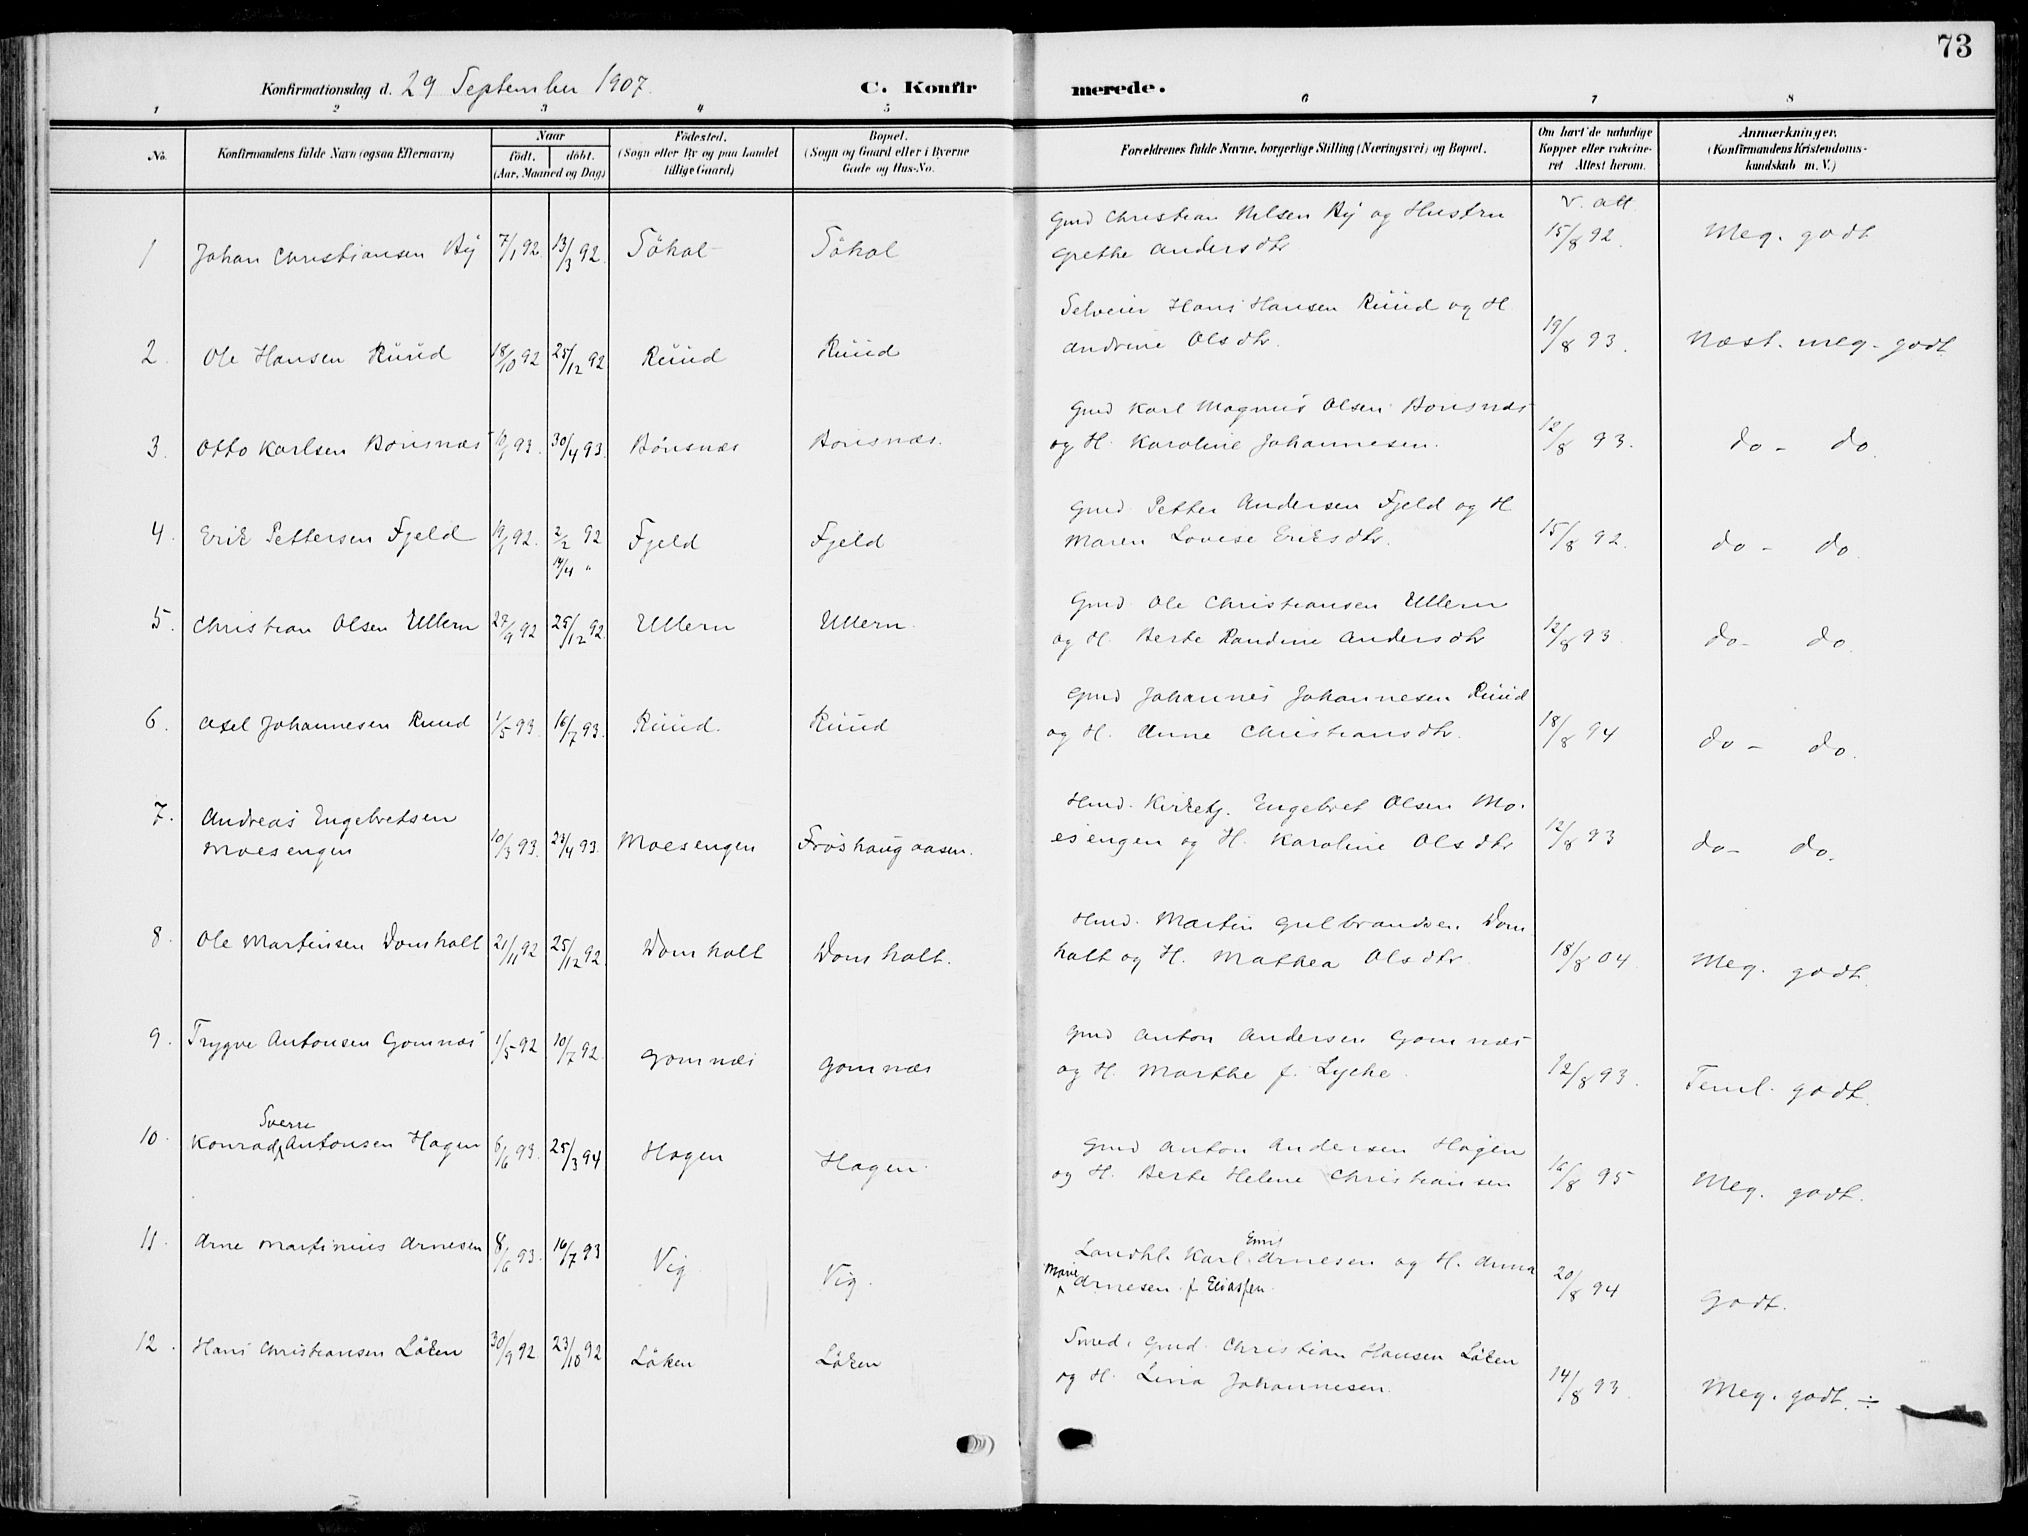 73
Konfirmationsdag d. 29 September 1907. C. Konfirmerede.
1 2 3 4 5 6 7 8
No. Konfirmandens fulde Navn (ogsaa Efternavn) Naar födt, döbt. (Aar, Maaned og Dag) Födested. (Sogn eller By og paa Landet tillige Gaard) Bopæl. (Sogn og Gaard eller i Byerne Gade og Hus-No. Forældrenes fulde Navne, borgerlige Stilling (Næringsvei) og Bopæl. Om havt de naturlige Kopper eller vakcineret Attest herom. Anmærkninger. (Konfirmandens Kristendomskundskab m. V.)
v. att.
Gmd Christian Nilsen By og Hustru
1 Johan Christiansen By 7/1 92. 13/3 92. Tökal Tökal Grethe Andersdtr 15/8 92. Meg. godt
Selveier Hans Hansen Rŭŭd og H.
2. Ole Hansen Rŭŭd 18/10 92 25/12 92 Rŭŭd Rŭŭd Andrine Olsdtr. 19/8 93. Næst. meg. godt
Gmd Karl Magnus Olsen Bönsnæs
3. Otto Karlsen Bönsnæs 93. 30/4 93. Bönsnæs Bönsnæs. og H. Karoline Johannesen. 12/8 93. do - do.
Gmd. Petter Andersen Fjeld og H
4. Erik Pettersen Fjeld 19/1 92. 2/2 92 Fjeld Fjeld Maren Lovise Eriksdtr. 15/8 92. do - do.
17/4 "
Gmd. Ole Christiansen Ullern
5. Christian Olsen Ullern 27/9 92 25/12 92. Ullern Ullern. og H. Berte Randine Andersdtr 12/8 93. do- do.
Gmd Johannes Johannesen Rŭŭd
6. Axel Johannesen Ruud 1/5 93. 16/7 93. Rŭŭd. Rŭŭd og H. Anne Christiansdtr. 18/8 94 do - do.
Hmd. Kirketj. Engebret Olsen Mo-
7. Andreas Engebretsen
Moesengen 10/3 93. 23/4 93. Moesengen Fröshaugaasen. esengen og H. Karoline Olsdtr 12/8 93 do- do.
Hmd. Martin Gulbrandsen Dom
8. Ole Martinsen Domholt 21/11 92 25/12 92. Domholt Domholt. holt og H. Mathea Olsdtr. 18/8 04. Meg. godt.
Gmd Anton Andersen Gomnæs
9. Trygve Antonsen Gomnæs 1/5 92 10/7 92. Gomnæs Gomnæs og H. Marthe f. Lyche. 12/8 93. Teml. godt.
Sverre
Gmd Anton Andersen Hagen
10. Konrad Antonsen Hagen 6/6 93. 25/3 94 Hagen Hagen. og H. Berte Helene Christiansen 16/8 95 Meg. godt.
Emil
Landhl. Karl Arnesen og H. Anna
11. Arne Martinius Arnesen 8/6 93. 16/7 93 Vig Vig. Marie Arnesen f. Eliassen. 20/8 94 Godt.
Smed, Gmd. Christian Hansen Löken
12. Hans Christiansen Löken 30/9 92. 23/10 92 Löken Löken og H. Lina Johannesen. 14/8 93. Meg. godt. ÷